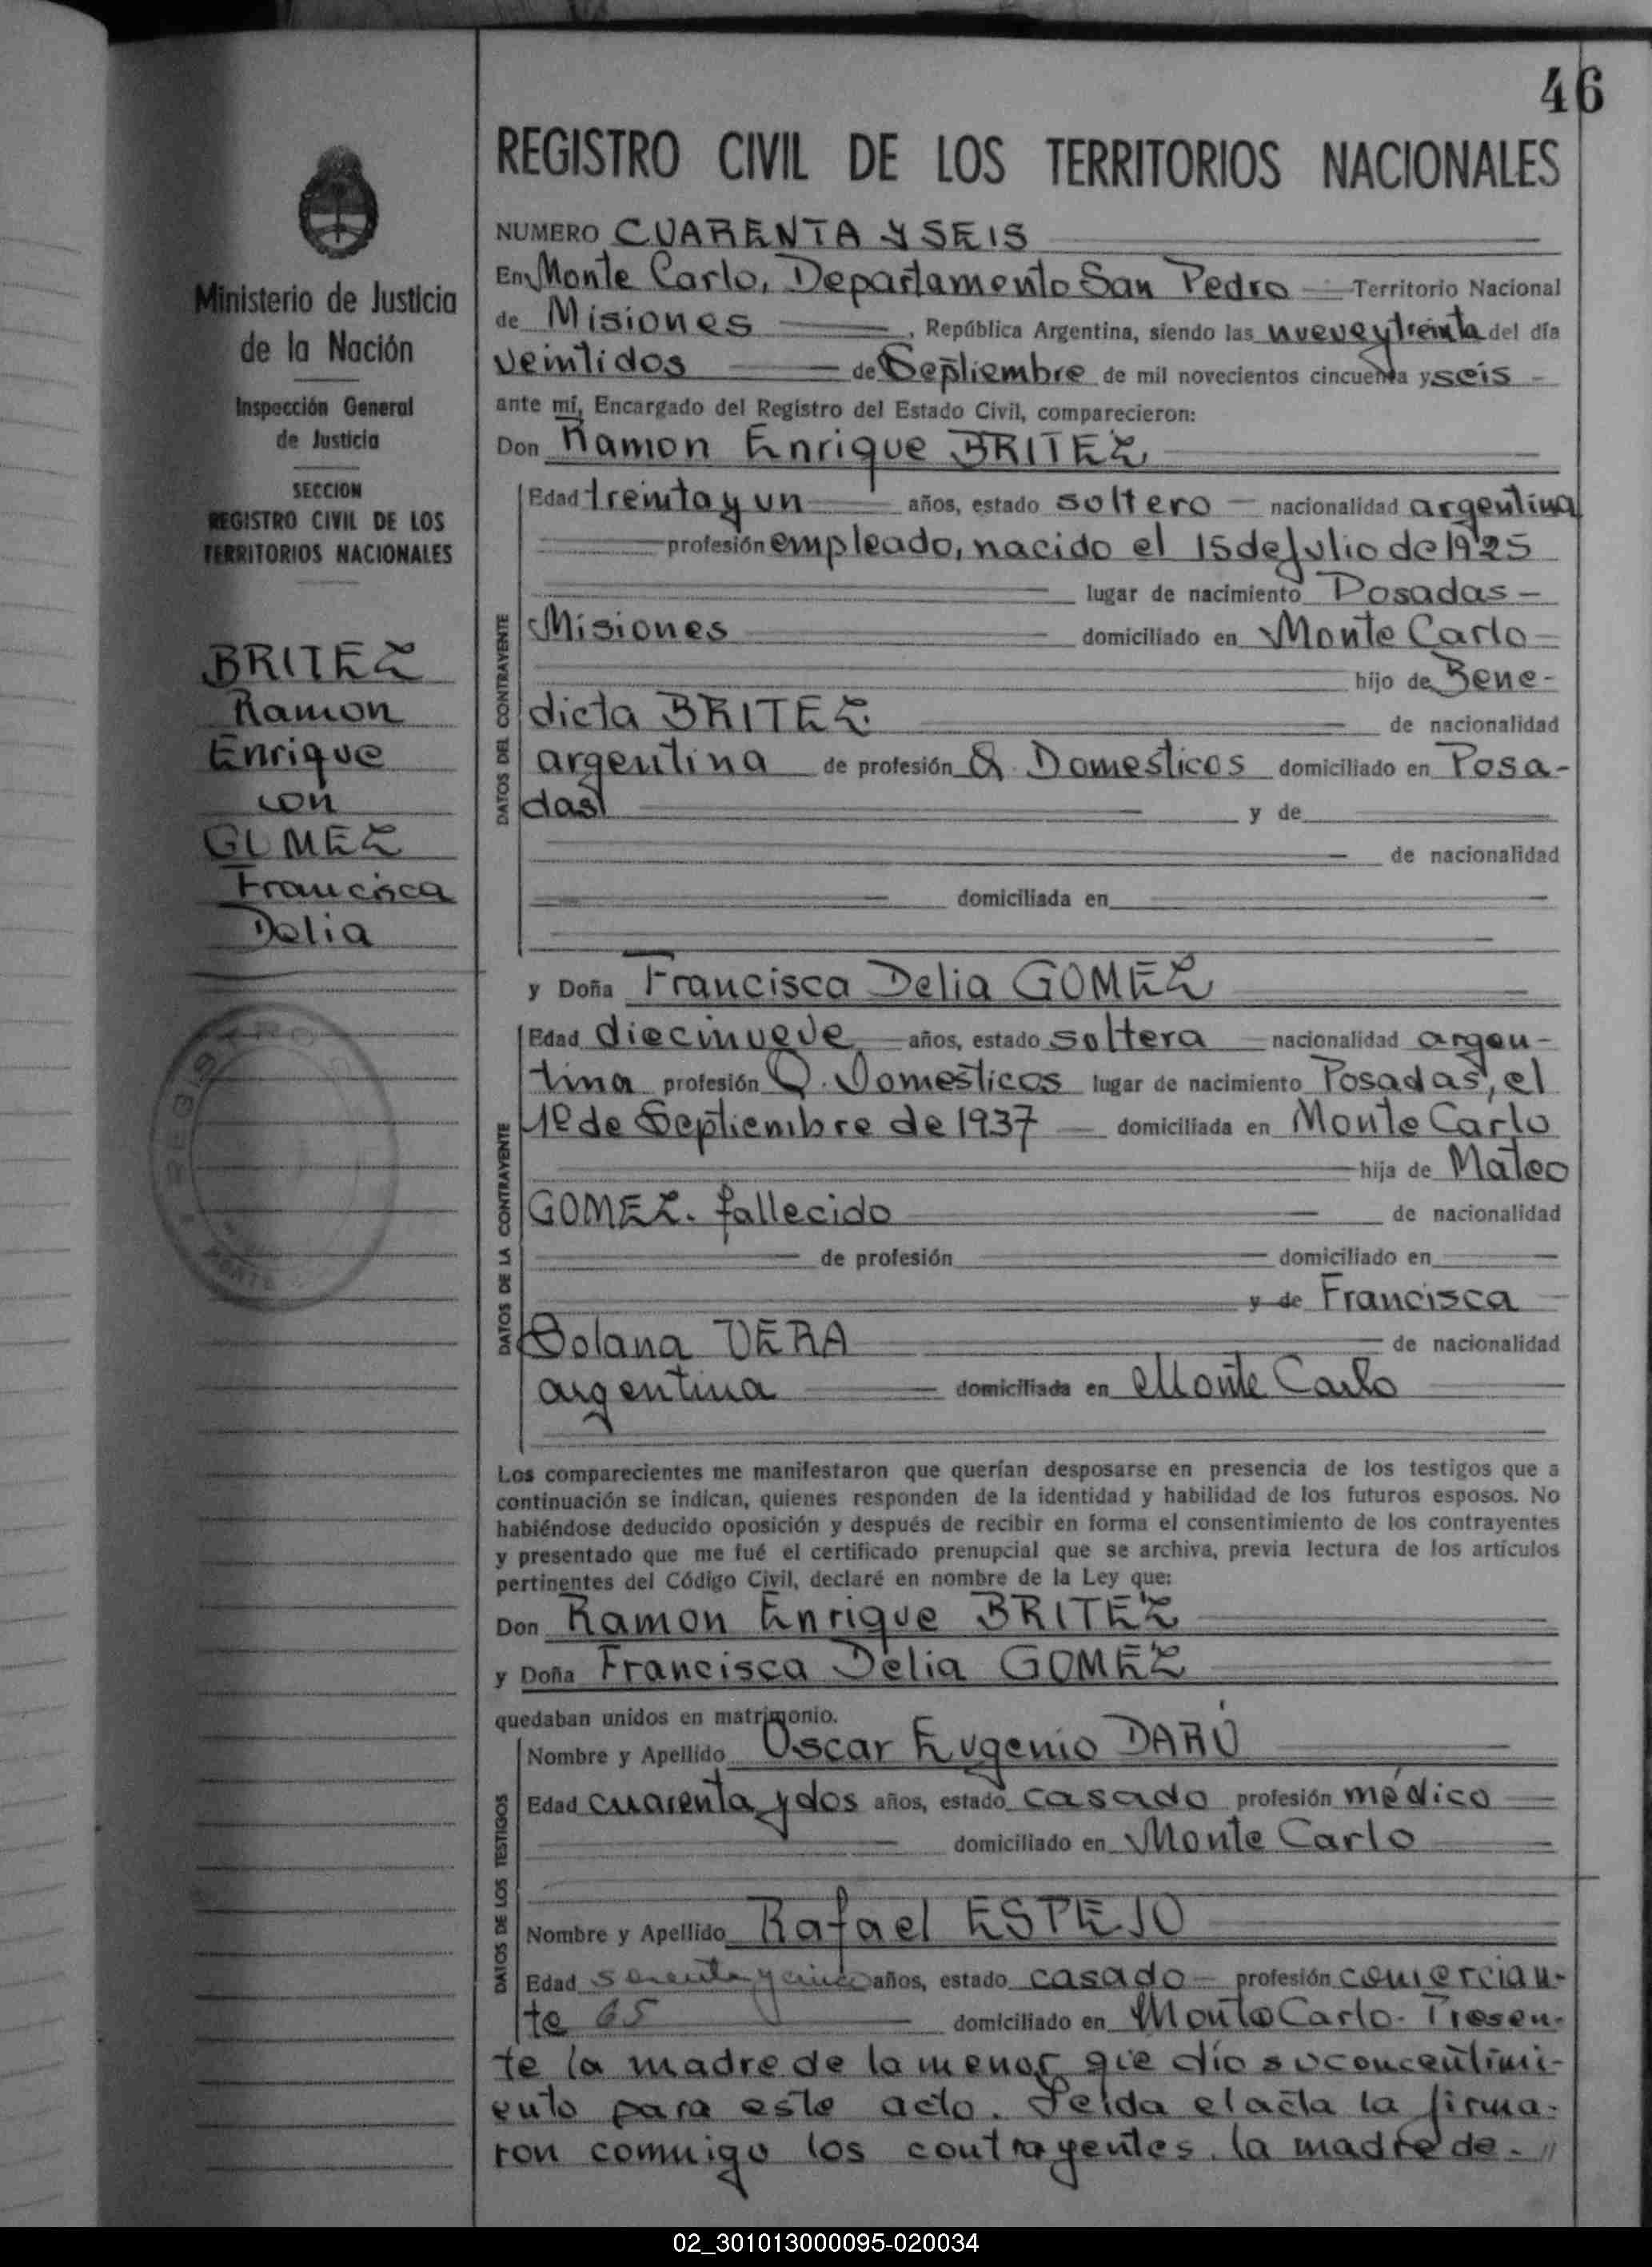 46
REGISTRO CIVIL DE LOS TERRITORIOS NACIONALES
Ministerio de Justicia
de la Nación
Inspección General
de Justicia
SECCION
REGISTRO CIVIL DE LOS
TERRITORIOS NACIONALES
BRITEZ
Ramon
Enrique
con
GOMEZ
Francisca
Delia
NUMERO CUARENTA Y SEIS
En Monte Carlo, Departamento San Pedro Territorio Nacional
de Misiones , República Argentina, siendo las nueve y treinta del día
veintidos de Septiembre de mil novecientos cincuenta y seis
ante mí, Encargado del Registro del Estado Civil, comparecieron:
Don Ramon Enrique BRITEZ
DATOS DEL CONTRAYENTE
Edad treinta y un años, estado soltero nacionalidad argentina
profesión empleado, nacido el 15 de Julio de 1925
lugar de nacimiento Posadas
Misiones domiciliado en Monte Carlo
hijo de Bene-
dicta BRITEZ. de nacionalidad
argentina de profesión Q. Domesticos domiciliado en Posa-
das y de
de nacionalidad
domiciliada en
y Doña Francisca Delia GOMEZ
DATOS DE LA CONTRAYENTE
Edad diecinueve años, estado soltera nacionalidad argen-
tina profesión Q. Domesticos lugar de nacimiento Posadas, el
1º de Septiembre de 1937 domiciliada en Monte Carlo
hija de Mateo
GOMEZ. fallecido de nacionalidad
de profesión domiciliado en
y de Francisca
Solana VERA de nacionalidad
argentina domiciliada en Monte Carlo
Los comparecientes me manifestaron que querían desposarse en presencia de los testigos que a
continuación se indican, quienes responden de la identidad y habilidad de los futuros esposos. No
habiéndose deducido oposición y después de recibir en forma el consentimiento de los contrayentes
y presentado que me fué el certificado prenupcial que se archiva, previa lectura de los artículos
pertinentes del Código Civil, declaré en nombre de la Ley que:
Don Ramon Enrique BRITEZ
y Doña Francisca Delia GOMEZ
quedaban unidos en matrimonio.
DATOS DE LOS TESTIGOS
Nombre y Apellido Oscar Eugenio DARÚ
Edad cuarenta y dos años, estado casado profesión médico
domiciliado en Monte Carlo
Nombre y Apellido Rafael ESPEJO
Edad y cinco años, estado casado profesión comercian-
te 65 domiciliado en Monte Carlo. Presen-
te la madre de la menor que dio su concentimi-
ento para este acto. Leida el acta la firma-
ron conmigo los contrayentes, la madre de- //
02_301013000095-020034